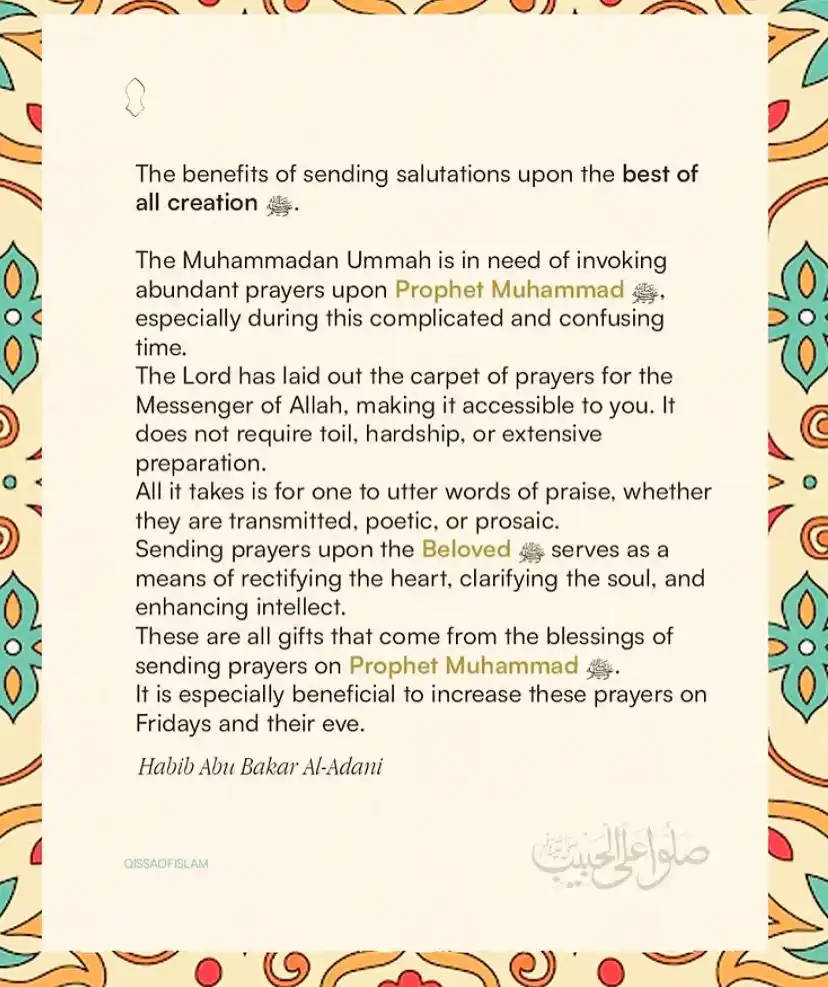 The benefits of sending salutations upon the best of
all creation ﷺ.
The Muhammadan Ummah is in need of invoking
abundant prayers upon Prophet Muhammad ﷺ,
especially during this complicated and confusing
time.
The Lord has laid out the carpet of prayers for the
Messenger of Allah, making it accessible to you. It
does not require toil, hardship, or extensive
preparation.
All it takes is for one to utter words of praise, whether
they are transmitted, poetic, or prosaic.
Sending prayers upon the Beloved ﷺ serves as a
means of rectifying the heart, clarifying the soul, and
enhancing intellect.
These are all gifts that come from the blessings of
sending prayers on Prophet Muhammad ﷺ.
It is especially beneficial to increase these prayers on
Fridays and their eve.
Habib Abu Bakar Al-Adani
QISSAOFISLAM
صلوا على الحبيب ﷺ